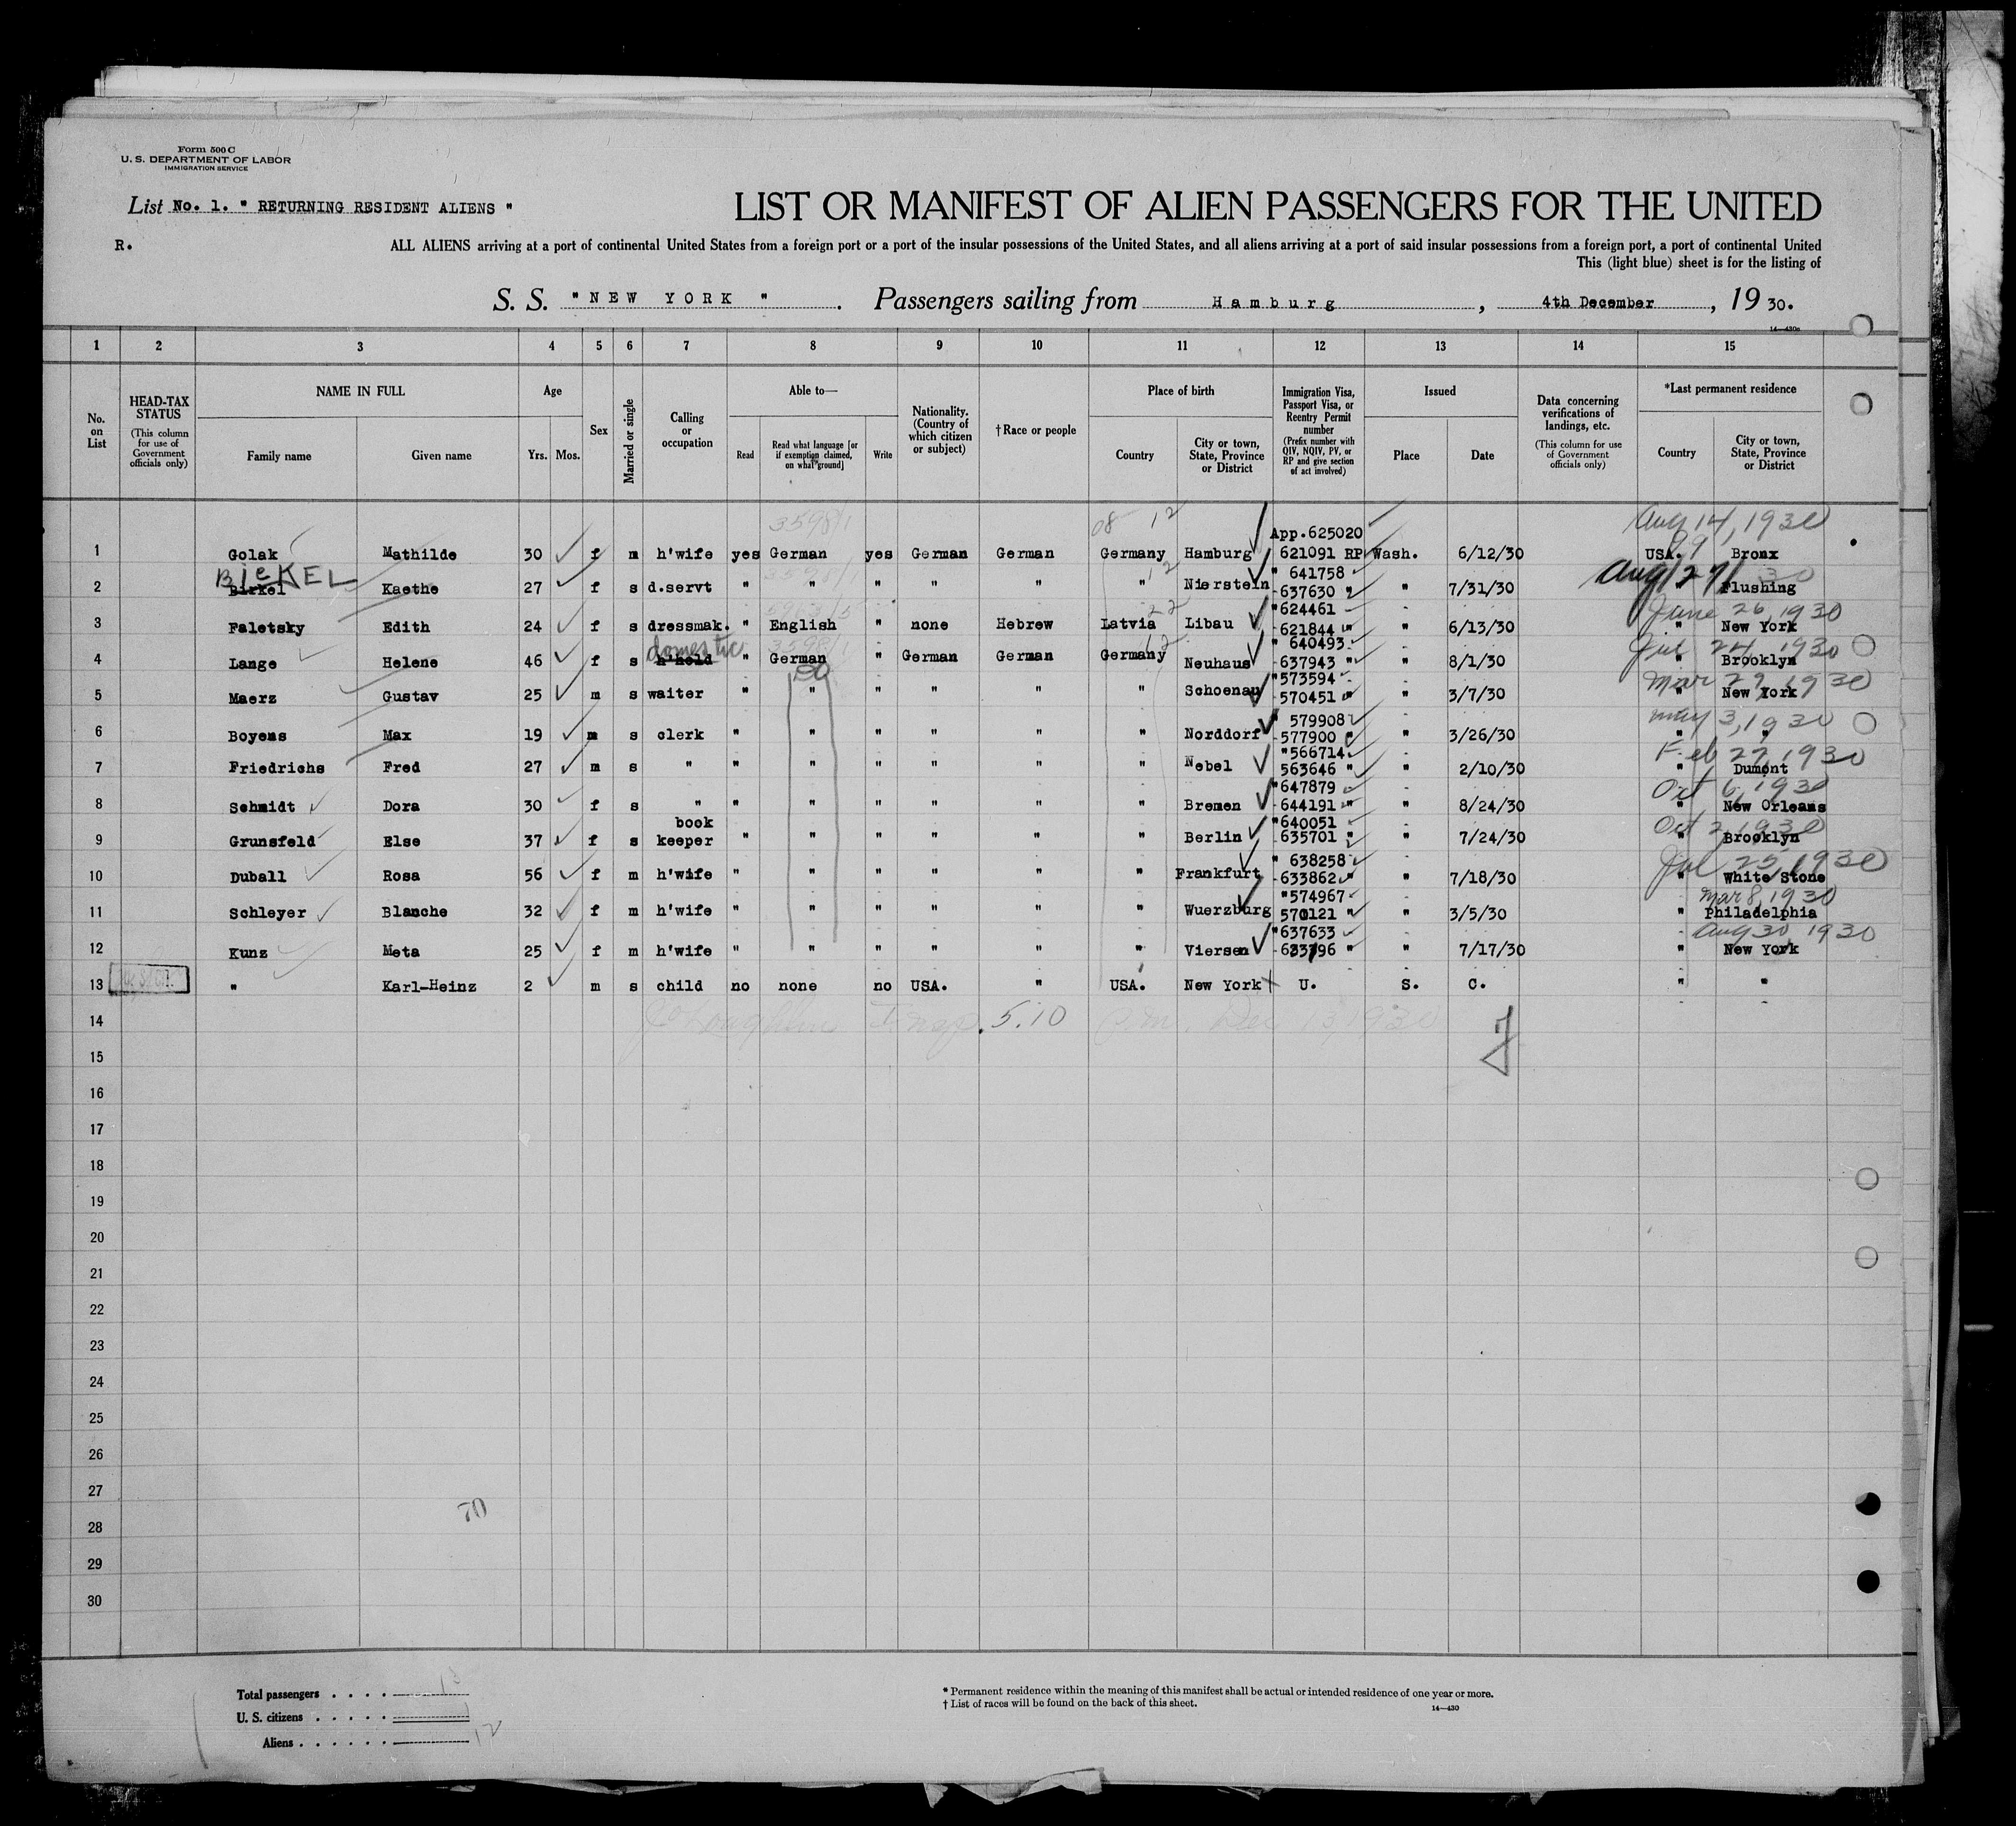 Form 500 C
U. S. DEPARTMENT OF LABOR
IMMIGRATION SERVICE
List No. 1. " RETURNING RESIDENT ALIENS "
LIST OR MANIFEST OF ALIEN PASSENGERS FOR THE UNITED
R.
ALL ALIENS arriving at a port of continental United States from a foreign port or a port of the insular possessions of the United States, and all aliens arriving at a port of said insular possessions from a foreign port, a port of continental United
This (light blue) sheet is for the listing of
S. S. " NEW YORK ". Passengers sailing from Hamburg, 4th December, 19 30.
14—430c
1 2 3 4 5 6 7 8 9 10 11 12 13 14 15
No. on List
HEAD-TAX STATUS (This column for use of Government officials only)
NAME IN FULL Family name Given name
Age Yrs. Mos.
Sex
Married or single
Calling or occupation
Able to— Read Read what language [or if exemption claimed, on what ground] Write
Nationality. (Country of which citizen or subject)
†Race or people
Place of birth Country City or town, State, Province or District
Immigration Visa, Passport Visa, or Reentry Permit number (Prefix number with QIV, NQIV, PV, or RP and give section of act involved)
Issued Place Date
Data concerning verifications of landings, etc. (This column for use of Government officials only)
*Last permanent residence Country City or town, State, Province or District
3598/1 08 12 App.625020 Aug 14, 1930
1 Golak Mathilde 30 f m h'wife yes German yes German German Germany Hamburg 621091 RP Wash. 6/12/30 USA. Bronx
BIeKEL 12 " 641758 Aug 27/30
2 Birkel Kaethe 27 f s d.servt " " " " " " Nierstein 637630 " " 7/31/30 Flushing
22 "624461 June 26, 1930
3 Faletsky Edith 24 f s dressmak. " English " none Hebrew Latvia Libau 621844 " " 6/13/30 " New York
domestic 3598/1 12 " 640493 Jul 24 1930
4 Lange Helene 46 f s h'hold German " German German Germany Neuhaus 637943 " " 8/1/30 " Brooklyn
"573594 Mar 29, 1930
5 Maerz Gustav 25 m s waiter " " " " " " Schoenau 570451 " " 3/7/30 " New York
" 579908 May 3, 1930
6 Boyens Max 19 m s clerk " " " " " " Norddorf 577900 " 3/26/30 " "
"566714 Feb 27, 1930
7 Friedrichs Fred 27 m s " " " " " " " Nebel 563646 " " 2/10/30 " Dumont
"647879 Oct 6, 1930
8 Schmidt Dora 30 f s " " " " " " " Bremen 644191 " " 8/24/30 " New Orleans
book "640051 Oct 2, 1930
9 Grunsfeld Else 37 f s keeper " " " " " " Berlin 635701 " " 7/24/30 " Brooklyn
" 638258 Jul 25, 1930
10 Duball Rosa 56 f m h'wife " " " " " " Frankfurt 633862 " " 7/18/30 " White Stone
"574967 Mar 8, 1930
11 Schleyer Blanche 32 f m h'wife " " " " " " Wuerzburg 570121 " " 3/5/30 " Philadelphia
"637633 Aug 30, 1930
12 Kunz Meta 25 f m h'wife " " " " " " Viersen 633796 " " 7/17/30 " New York
13 " Karl-Heinz 2 m s child no none no USA. " USA. New York U. S. C. " "
14 Insp. 5.10 Pm. Dec 13, 1930
15
16
17
18
19
20
21
22
23
24
25
26
27
70
28
29
30
Total passengers . . . . 13
U. S. citizens . . . . . 1
Aliens . . . . . . 12
* Permanent residence within the meaning of this manifest shall be actual or intended residence of one year or more.
† List of races will be found on the back of this sheet.
14—430